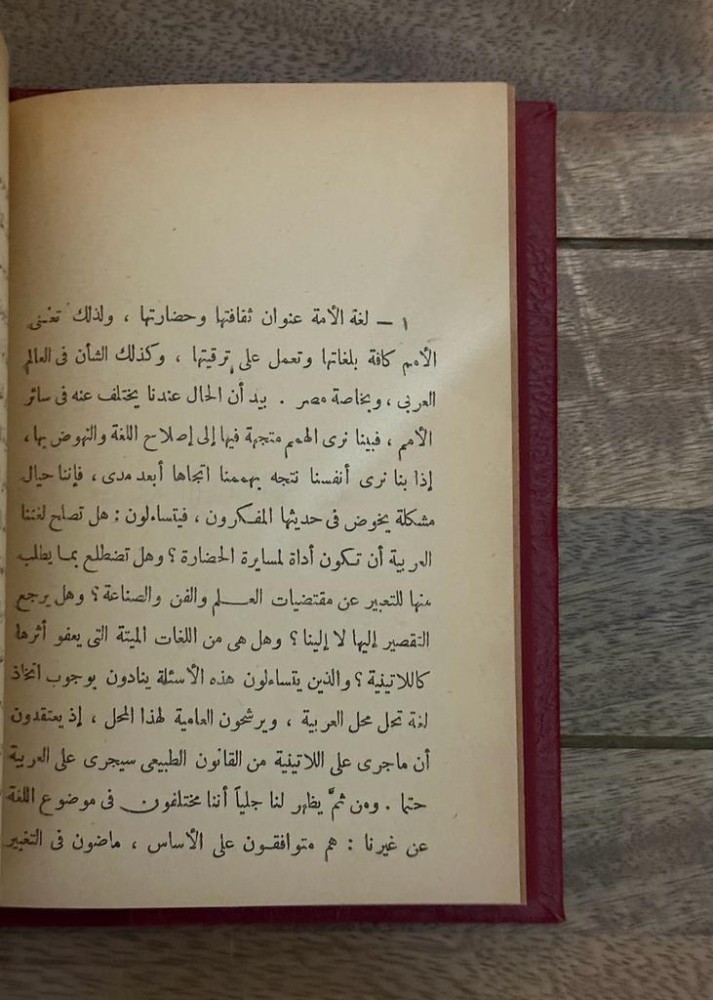 ١ — لغة الأمة عنوان ثقافتها وحضارتها ، ولذلك تعنى
الأمم كافة بلغاتها وتعمل على ترقيتها ، وكذلك الشأن فى العالم
العربى ، وبخاصة مصر . بيد أن الحال عندنا يختلف عنه فى سائر
الأمم ، فبينا نرى الهمم متجهة فيها إلى إصلاح اللغة والنهوض بها ،
إذا بنا نرى أنفسنا نتجه بهممنا اتجاها أبعد مدى ، فإننا حيال
مشكلة يخوض فى حديثها المفكرون ، فيتساءلون : هل تصلح لغتنا
العربية أن تكون أداة لمسايرة الحضارة ؟ وهل تضطلع بما يطلب
منها للتعبير عن مقتضيات العلم والفن والصناعة ؟ وهل يرجع
التقصير إليها لا إلينا ؟ وهل هى من اللغات الميتة التى يعفو أثرها
كاللاتينية ؟ والذين يتساءلون هذه الأسئلة ينادون بوجوب اتخاذ
لغة تحل محل العربية ، ويرشحون العامية لهذا المحل ، إذ يعتقدون
أن ماجرى على اللاتينية من القانون الطبيعى سيجرى على العربية
حتما . ومن ثمَّ يظهر لنا جلياً أننا مختلفون فى موضوع اللغة
عن غيرنا : هم متوافقون على الأساس ، ماضون فى التغيير